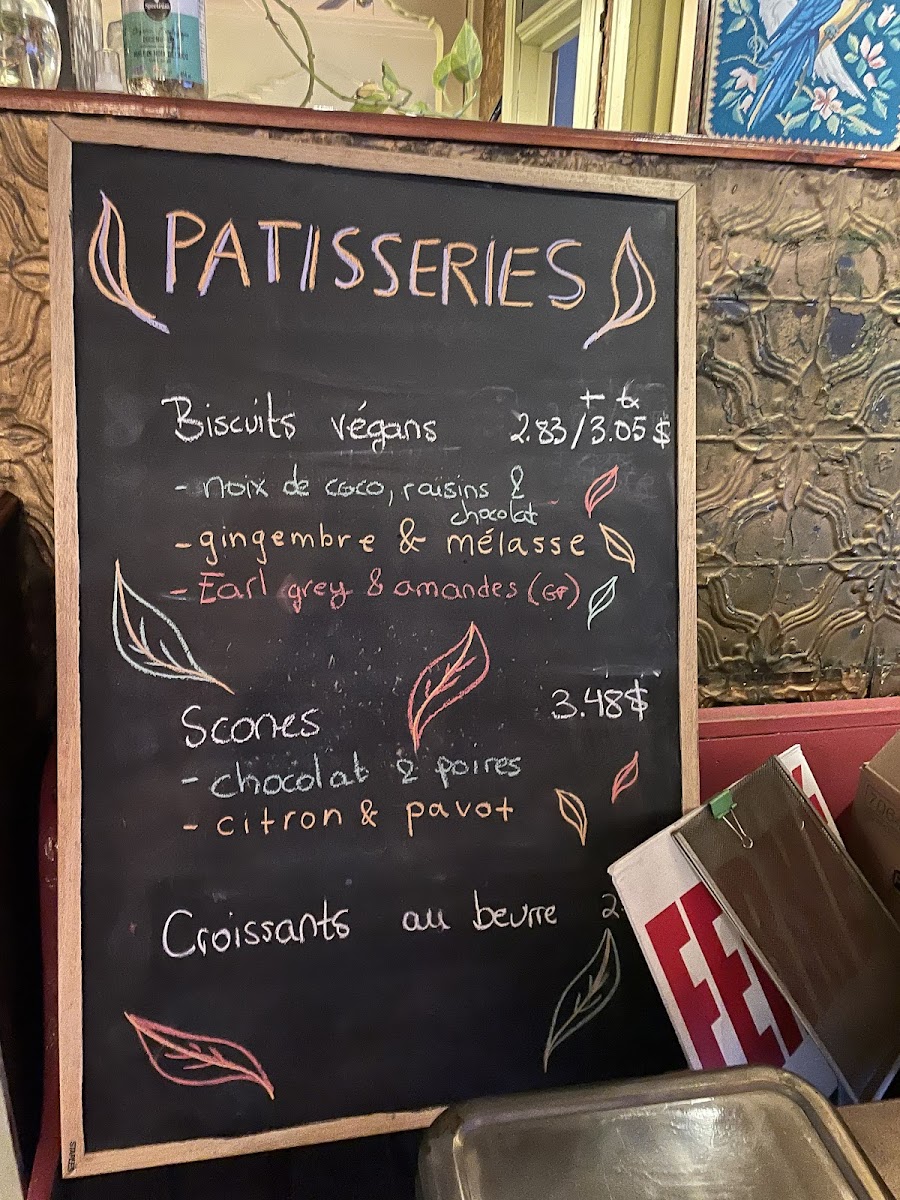 PATISSERIES
+ tx
Biscuits végans 2.83/3.05$
- noix de coco, raisins &
chocolat
- gingembre & mélasse
- Earl grey & amandes (GF)
Scones 3.48$
- chocolat & poires
- citron & pavot
Croissants au beurre 2.
STAPLES